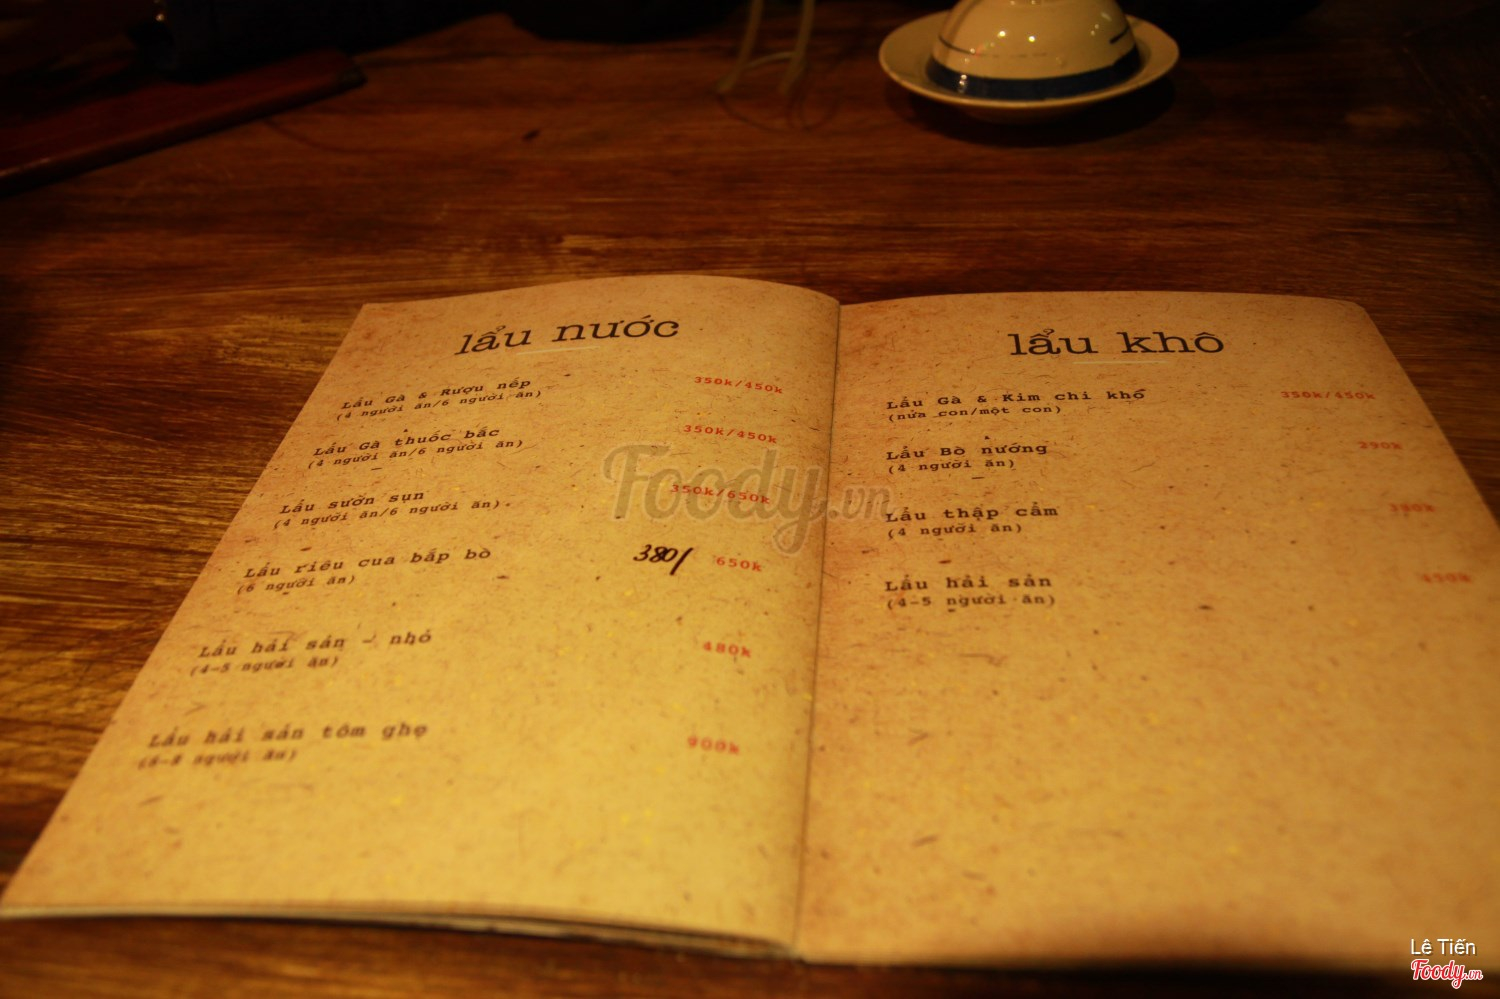 lẩu nước
Lẩu Gà & Rượu nếp 350k/450k
(4 người ăn/6 người ăn)
Lẩu Gà thuốc bắc 350k/450k
(4 người ăn/6 người ăn)
Lẩu sườn sụn 350k/650k
(4 người ăn/6 người ăn).
Lẩu riêu cua bắp bò 380/ 650k
(6 người ăn)
Lẩu hải sản - nhỏ 480k
(4-5 người ăn)
Lẩu hải sản tôm ghẹ 900k
người ăn)
lẩu khô
Lẩu Gà & Kim chi khô 350k/450k
(nửa con/một con)
Lẩu Bò nướng 290k
(4 người ăn)
Lẩu thập cẩm
(4 người ăn)
Lẩu hải sản
(4-5 người ăn)
Foody.vn
Lê Tiến
Foody.vn